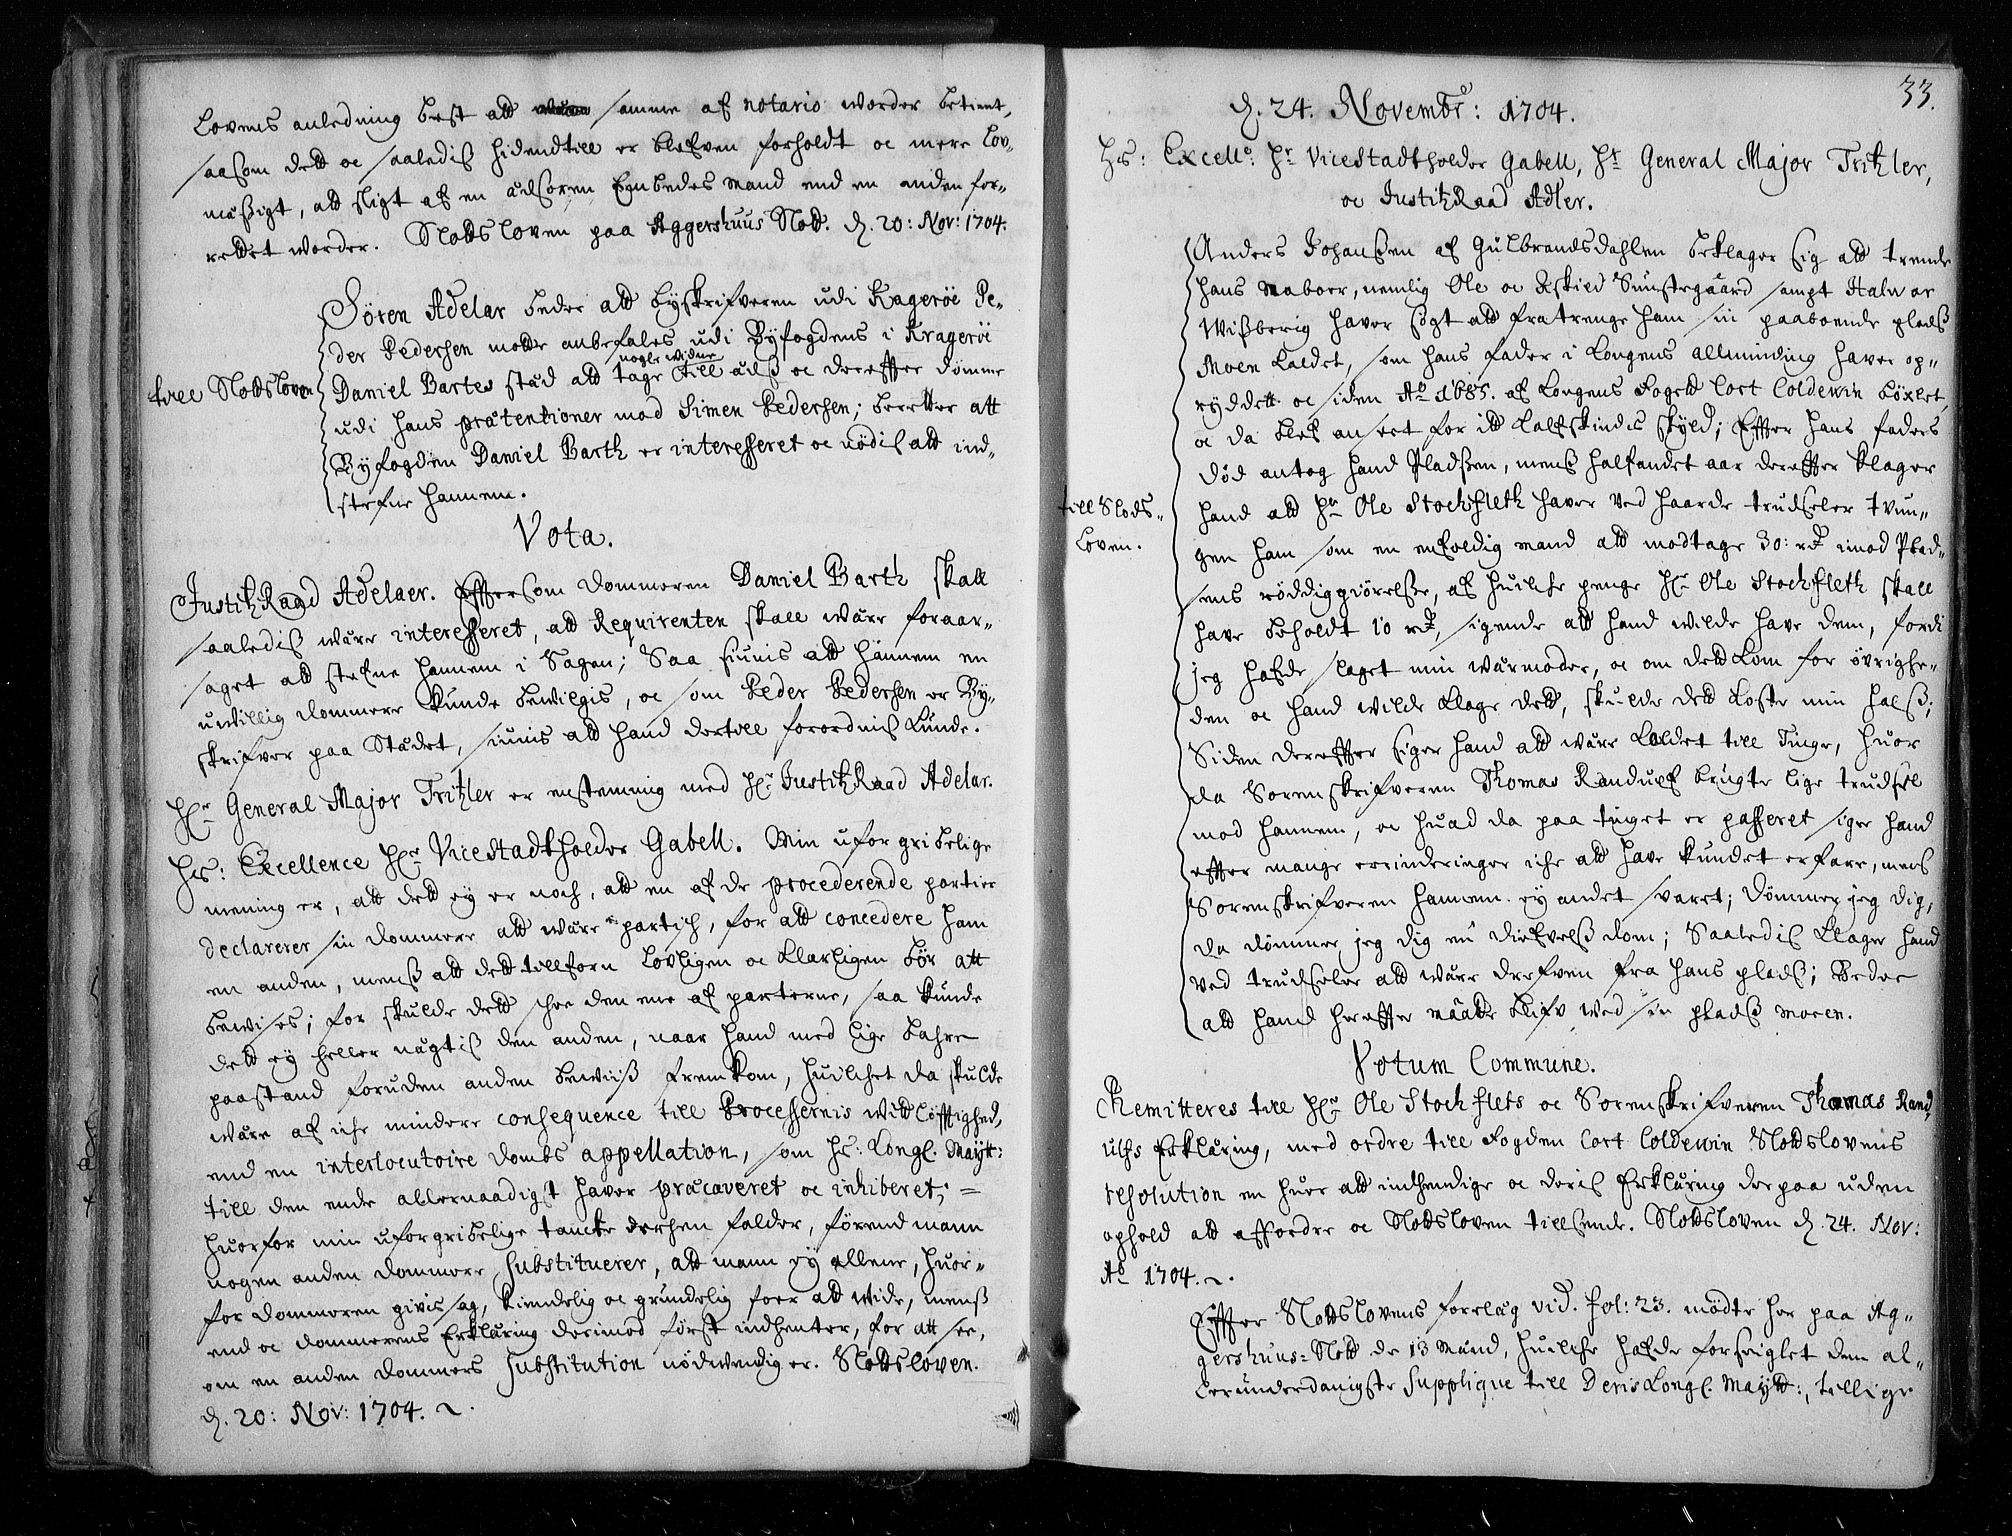 Lovens anledning best att samme af notario worder betient,
saasom dett oc saaledis hidendtill er blefven forholdt oc mere Lov-
mæssigt, att sligt af en ædsoren Embedes mand end en anden for-
rettet worder. Slottsloven paa Aggershuus Slott. d. 20: Nov: 1704.
Sören Adelar beder att byskrifveren udi Kragerøe Pe-
der Pedersen motte anbefales udi Byfogdens i Kragerøe
nogle widne
till Slottsloven
Daniel Bartes stæd att tage till æds oc derefter dömme
udi hans prætentioner mod Simen Pedersen; beretter att
Byfogden Daniel Barth er interesseret oc nödis att ind-
stefne hannem.
Vota.
Justitz Raad Adelaer. Effersom dommeren Daniel Barth skall
saaledis være interesseret, att Requirenten skall være foraar-
saget att stefne hannem i Sagen; Saa siunis att hannem en
uwillig dommere kunde bewilgis, oc som Peder Pedersen er By-
skrifver paa Stædet, siunis att hand dertill forordnis kunde.
Hr General Major Tritzler er enstemmig med Hr Justitz Raad Adelar.
Hs: Excellence Hr ViceStadtholder Gabell. Min uforgribelige
mening er, att dett ey er noch, att en af de procederende partier
declarerer sin dommere att være partisk, for att concedere ham
en anden, menss att dett tillforn lovligen oc klarligen bör att
bewises; for skulde dett schee den ene af parterne, saa kunde
dett ey heller nægtis den anden, naar hand med lige bahre
paastand foruden anden bewiiss fremkom, huilchet da skulde
være af iche mindere consequence till Processernis widtløfftighed,
end en interlocutoire dombs appellation, som Hs: Kongl. Maytt:
till den ende allernaadigst haver præcaveret oc inhiberet; =
huorfor min uforgribelige tancke derhen falder, förend mann
nogen anden dommere substituerer, att mann ey allene, huor-
for dommeren givis sag, kiendelig oc grundelig foer att wide, menss
end oc dommerens Erklæring derimod først indhenter, for att see,
om en anden dommers substitution nödwendig er. Slottsloven.
d. 20: Nov: 1704.
33.
d. 24. Novembr: 1704.
Hs: Excell: Hr ViceStadtholder Gabell, Hr General Major Tritzler,
oc Justitz Raad Adler.
Anders Johanssen af Gulbrandsdahlen beklager sig att trende
hans naboer, nemlig Ole oc Eskied Sunstegaard sampt Halvor
Wissberig haver sögt att fratrenge ham sin paaboende pladss
Moen kaldet, som hans fader i Kongens allminding haver op-
ryddett oc siden Ao 1685. af Kongens Fogett Cort Coldewin böxlet,
oc da blef ansaet for itt kalfskindis skyld; Effter hans faders
död antog hand Pladssen, menss halfandet aar derefter klager
till Slods-
Loven.
hand att Hr Ole Stochfleth haver ved haarde trudseler tvun-
gen ham som en enfoldig mand att modtage 30: rd imod Plad-
sens röddiggiörelse, af huilche penge Hr Ole Stochfleth skall
have beholdt 10 rd, sigende att hand wilde have dem, fordi
jeg hafde slaget min wærmoder, oc om dett kom for øvrighe-
den oc hand wilde klage dett, skulde dett koste min halss;
Siden dereffter siger hand att være kaldet till Tinge, huor
da Sorenskrifveren Thomas Randuelf brugte lige trudsel
mod hannem, oc huad da paa tinget er passeret siger hand
effter mange erinderinger iche att have kundet erfare, mens
Sorenskrifveren hannem ey andet svaret; Dömmer jeg dig,
da dömmer jeg dig en diefvelss dom; Saaledis klager hand
ved trudseler att være drefven fra hans pladss; Beder
att hand hereffter maatte blifve wed sin pladss Moen.
Votum Commune.
Remitteres till Hr Ole Stochflets oc Sorenskrifveren Thomas Rand-
ulfs Erklæring, med ordre till Fogden Cort Coldewin Slottslovens
resolution en huer att indhendige oc deris Erklæring derpaa uden
ophold att affordre oc Slottsloven tillsende. Slottsloven d. 24. Nov:
Ao 1704.
Effter Slottslovens forelæg vid. fol: 23. mödte her paa Ag-
gershuus-Slott de 13 Mænd, huilche hafde forseiglet den al-
lerunderdanigste Supplique till Deris Kongl. Maytt:, tillige